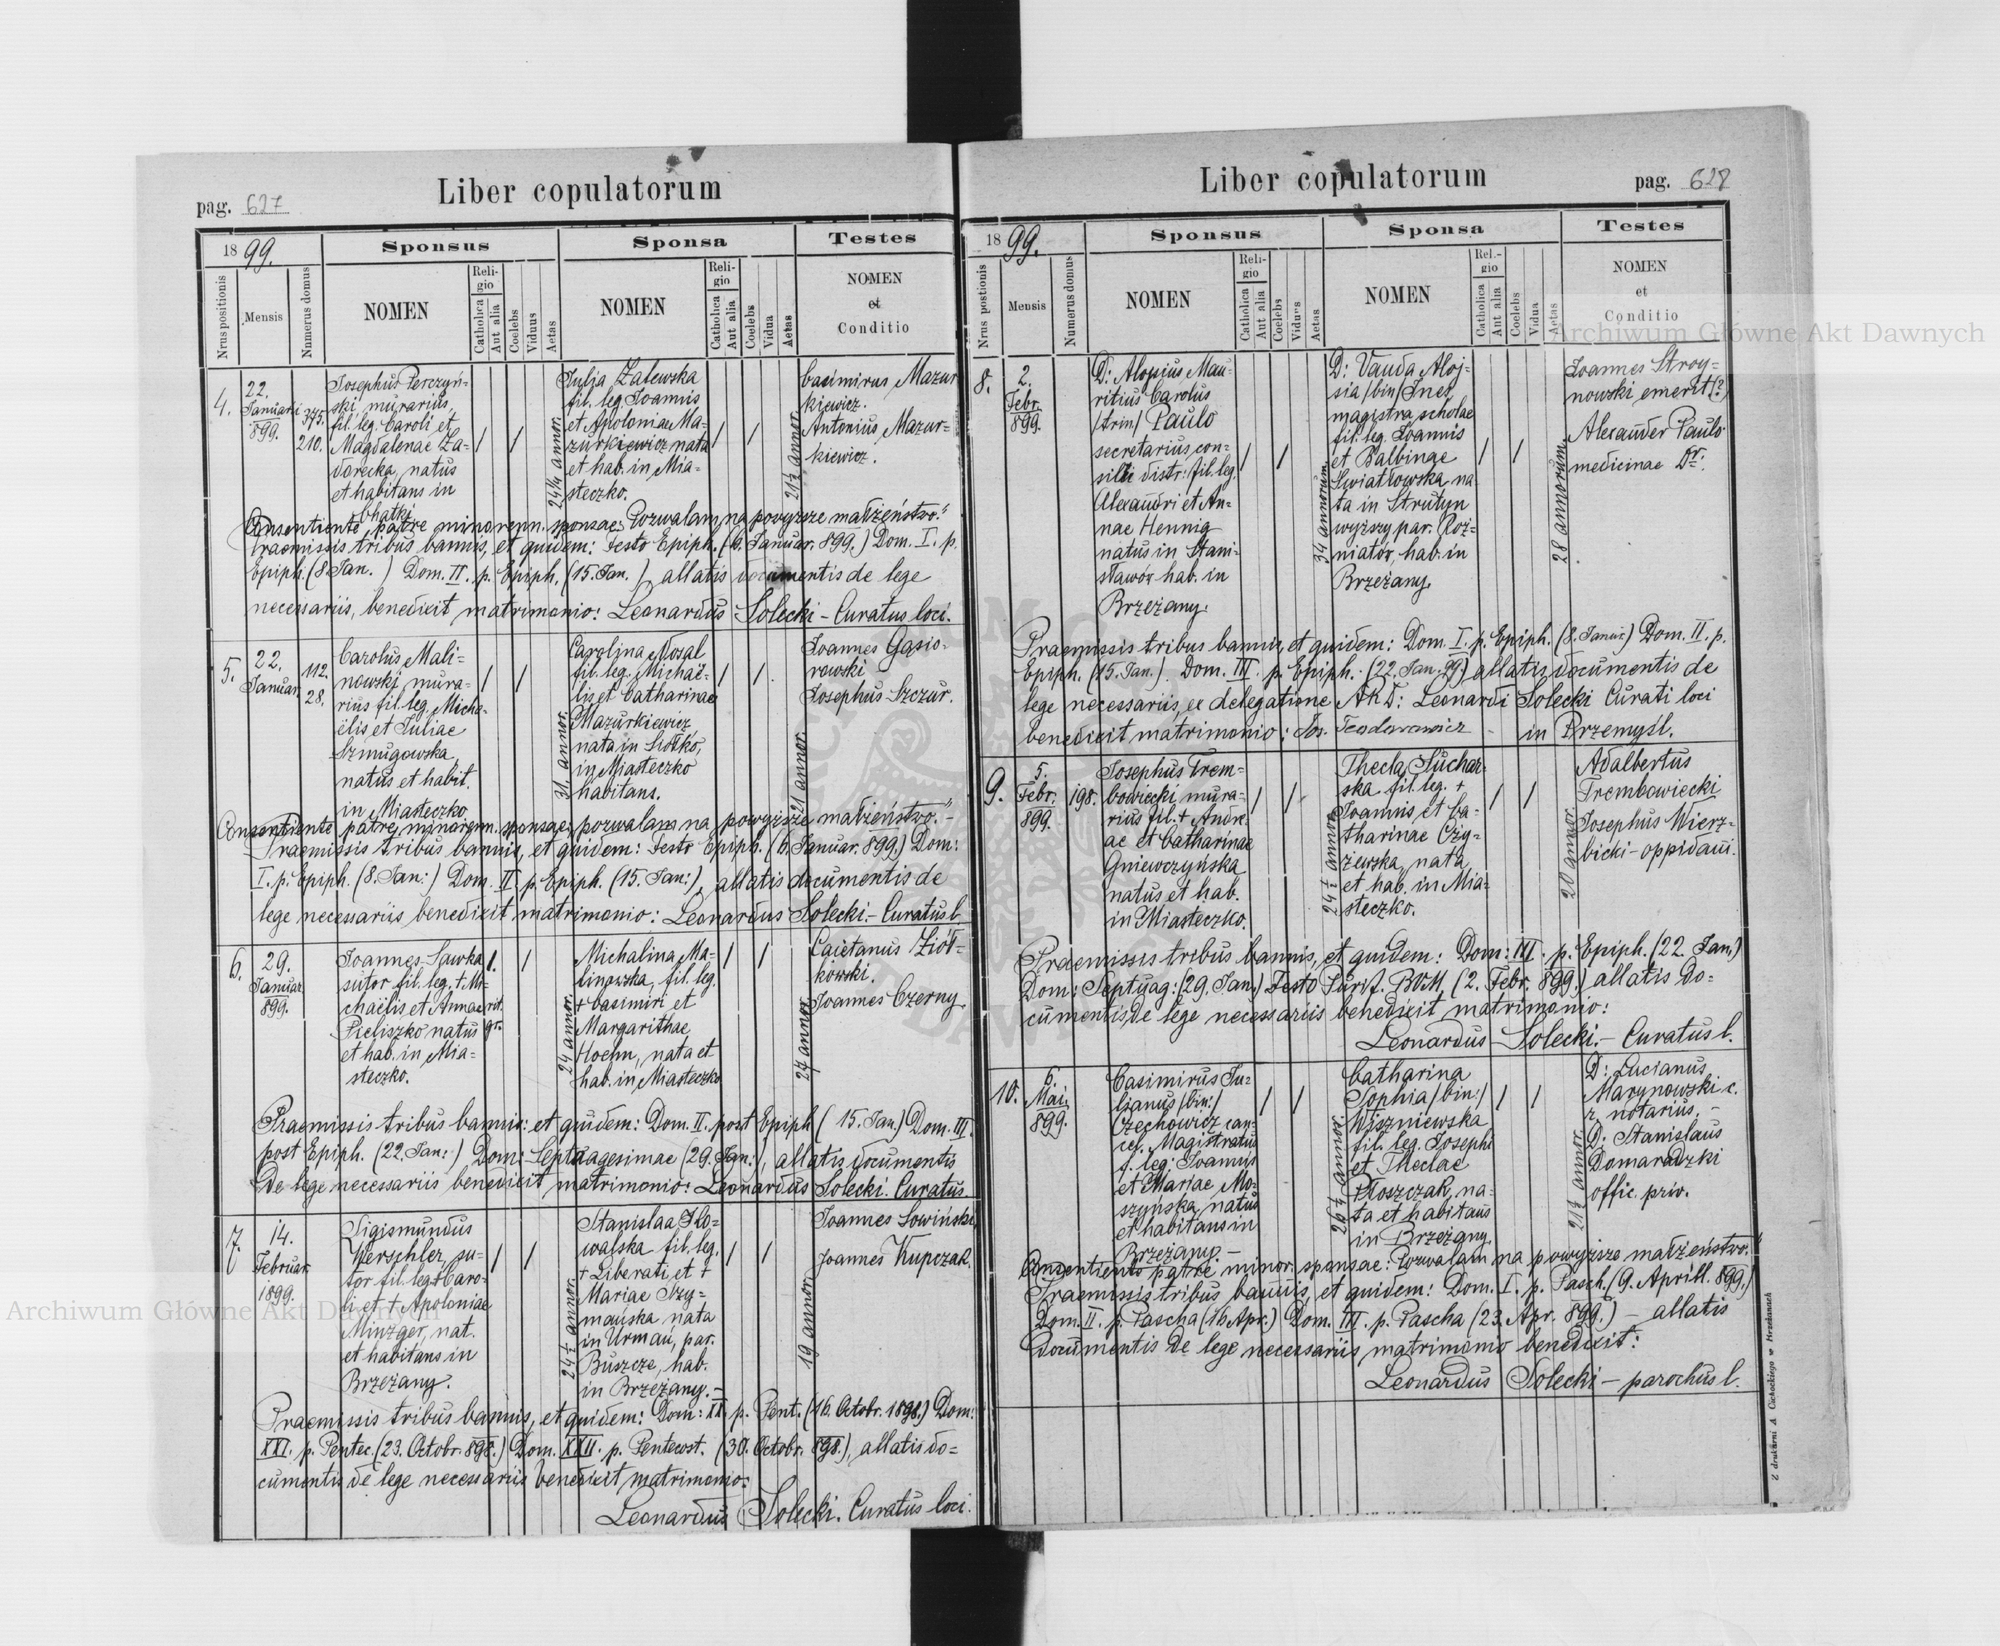 Liber copulatorum
pag. 627
1899.
Sponsus
Sponsa
Testes
Nrus positionis
Mensis
Numerus domus
NOMEN
Religio
Catholica
Aut alia
Coelebs
Viduus
Aetas
NOMEN
Religio
Catholica
Aut alia
Coelebs
Vidua
Aetas
NOMEN
et
Conditio
4.
22.
Januarii
899.
375.
210.
Josephus Perczyń-
ski, murarius,
fil. leg. Caroli et
Magdalenae Za-
dorecka, natus
et habitans in
Chatki
24¼ annor.
Julia Zalewska
fil. leg. Joannis
et Apoloniae Ma-
zurkiewicz nata
et hab. in Mia-
steczko.
21½ annor.
Casimirus Mazur
kiewicz.
Antonius Mazur-
kiewicz.
Consentiente patre minorenn. sponsae: Pozwalam na powyższe małżeństwo."
Praemissis tribus bannis, et quidem: Festo Epiph. (6. Januar. 899.) Dom. I. p.
Epiph. (8. Jan. ) Dom. II. p. Epiph. (15. Jan. ) allatis documentis de lege
necessariis, benedixit matrimonio: Leonardus Solecki - Curatus loci.
5.
22.
Januar.
112.
28.
Carolus Mali-
nowski, mura-
rius fil. leg. Micha-
ëlis et Juliae
Szmugowska,
natus et habit.
in Miasteczko
31. annor.
Carolina Nosal
fil. leg. Michaë-
lis et Catharinae
Mazurkiewicz
nata in Siółko,
in Miasteczko
habitans.
21 annor.
Joannes Gąsio-
rowski
Josephus Szczur.
Consentiente patre minorenn. sponsae: pozwalam na powyższe małżeństwo." -
Praemissis tribus bannis, et quidem: Festo Epiph. (6. Januar. 899.) Dom:
I. p. Epiph. (8. Jan:) Dom. II. p. Epiph. (15. Jan:), allatis documentis de
lege necessariis benedixit matrimonio: Leonardus Solecki. - Curatus l.
6.
29.
Januar.
899.
Joannes Sawka
sutor fil. leg. + Mi-
chaëlis et Annae
Pieliszko natus
et hab. in Mia-
steczko.
rit.
gr.
24 annor.
Michalina Ma-
linowska, fil. leg.
+ Casimiri et
Margarithae
Hoehn, nata et
hab. in Miasteczko
24 annor.
Caietanus Ziół-
kowski.
Joannes Czerny
Praemissis tribus bannis: et quidem: Dom. II. post Epiph ( 15. Jan.) Dom. III.
post Epiph. (22. Jan:) Dom: Septuagesimae (29. Jan:), allatis documentis
de lege necessariis benedixit matrimonio: Leonardus Solecki. Curatus.
7.
14.
Februar.
1899.
Sigismundus
Werschler, su-
tor fil. leg. + Caro-
li et + Apoloniae
Minzger, nat.
et habitans in
Brzeżany.
24½ annor.
Stanislaa Ho-
walska fil. leg.
+ Liberati et +
Mariae Szy-
mańska nata
in Urmań, par.
Buszcze, hab.
in Brzeżany. -
19 annor.
Joannes Sowiński
Joannes Kupczak.
Praemissis tribus bannis, et quidem: Dom: XX. p. Pent. (16. Octobr. 1898.) Dom:
XXI. p. Pentec. (23. Octobr. 898.) Dom. XXII. p. Pentecost. (30. Octobr. 898.), allatis do-
cumentis de lege necessariis benedixit matrimonio:
Leonardus Solecki. Curatus loci.
Liber copulatorum
pag. 628
1899.
Sponsus
Sponsa
Testes
Nrus postionis
Mensis
Numerus domus
NOMEN
Religio
Catholica
Aut alia
Coelebs
Viduus
Aetas
NOMEN
Rel.-
gio
Catholica
Aut alia
Coelebs
Vidua
Aetas
NOMEN
et
Conditio
8.
2.
Febr.
899.
D: Aloysius Mau-
ritius Carolus
/trin/ Paulo
secretarius con-
silii distr: fil. leg.
Alexandri et An-
nae Hennig
natus in Stani-
sławów hab. in
Brzeżany.
34 annorum
D: Vanda Aloj-
sia /bin/ Inez
magistra scholae
fil. leg. Joannis
et Balbinae
Swiatłowska na
ta in Strutyn
wyższy par. Roż-
niatów, hab. in
Brzeżany.
28 annorum.
Joannes Stroy-
nowski emerit(?)
Alexander Paulo
medicinae Dr:
Praemissis tribus bannis, et quidem: Dom. I. p. Epiph. (8. Januar) Dom. II. p.
Epiph. (15. Jan.). Dom. III. p. Epiph. (22. Jan. 99) allatis documentis de
lege necessariis, ex delegatione A R D: Leonardi Solecki Curati loci
benedixit matrimonio: Jos. Teodorowicz in Przemyśl.
9.
5.
Febr.
899.
198.
Josephus Trem-
bowiecki mura-
rius fil. + Andre-
ae et Catharinae
Gniewczyńska
natus et hab.
in Miasteczko.
24½ annor.
Thecla Suchar-
ska fil. leg. +
Joannis et Ca-
tharinae Czy-
żewska, nata
et hab. in Mia-
steczko.
20 annor.
Adalbertus
Trembowiecki
Josephus Wierz-
bicki - oppidani.
Praemissis tribus bannis, et quidem: Dom: III. p. Epiph. (22. Jan.)
Dom: Septuag: (29. Jan.) Festo Purif. BVM. (2. Febr. 899.) allatis do-
cumentis de lege necessariis benedixit matrimonio:
Leonardus Solecki. - Curatus l.
10.
6.
Mai.
899.
Casimirus Ju-
lianus /bin:/
Czechowicz can-
cel. Magistratus
f. leg: Joannis
et Mariae Mo-
szyńska, natus
et habitans in
Brzeżany. -
26½ annor.
Catharina
Sophia /bin:/
Wiszniewska
fil. leg. Josephi
et Theclae
Płoszczak, na-
ta et habitans
in Brzeżany.
21½ annor.
D: Lucianus
Marynowski c.
r. notarius. -
D: Stanislaus
Domaradzki
offic. priv.
Consentiente patre minor. sponsae: Pozwalam na powyższe małżeństwo."
Praemissis tribus bannis, et quidem: Dom. I. p. Pasch. (9. Aprill. 899.)
Dom. II. p. Pascha (16. Apr.) Dom. III. p. Pascha (23. Apr. 899.) - allatis
documentis de lege necessariis matrimonio benedixit:
Leonardus Solecki - parochus l.
Z drukarni A Cichockiego w Brzeżanach
Archiwum Główne Akt Dawnych
Archiwum Główne Akt Dawnych